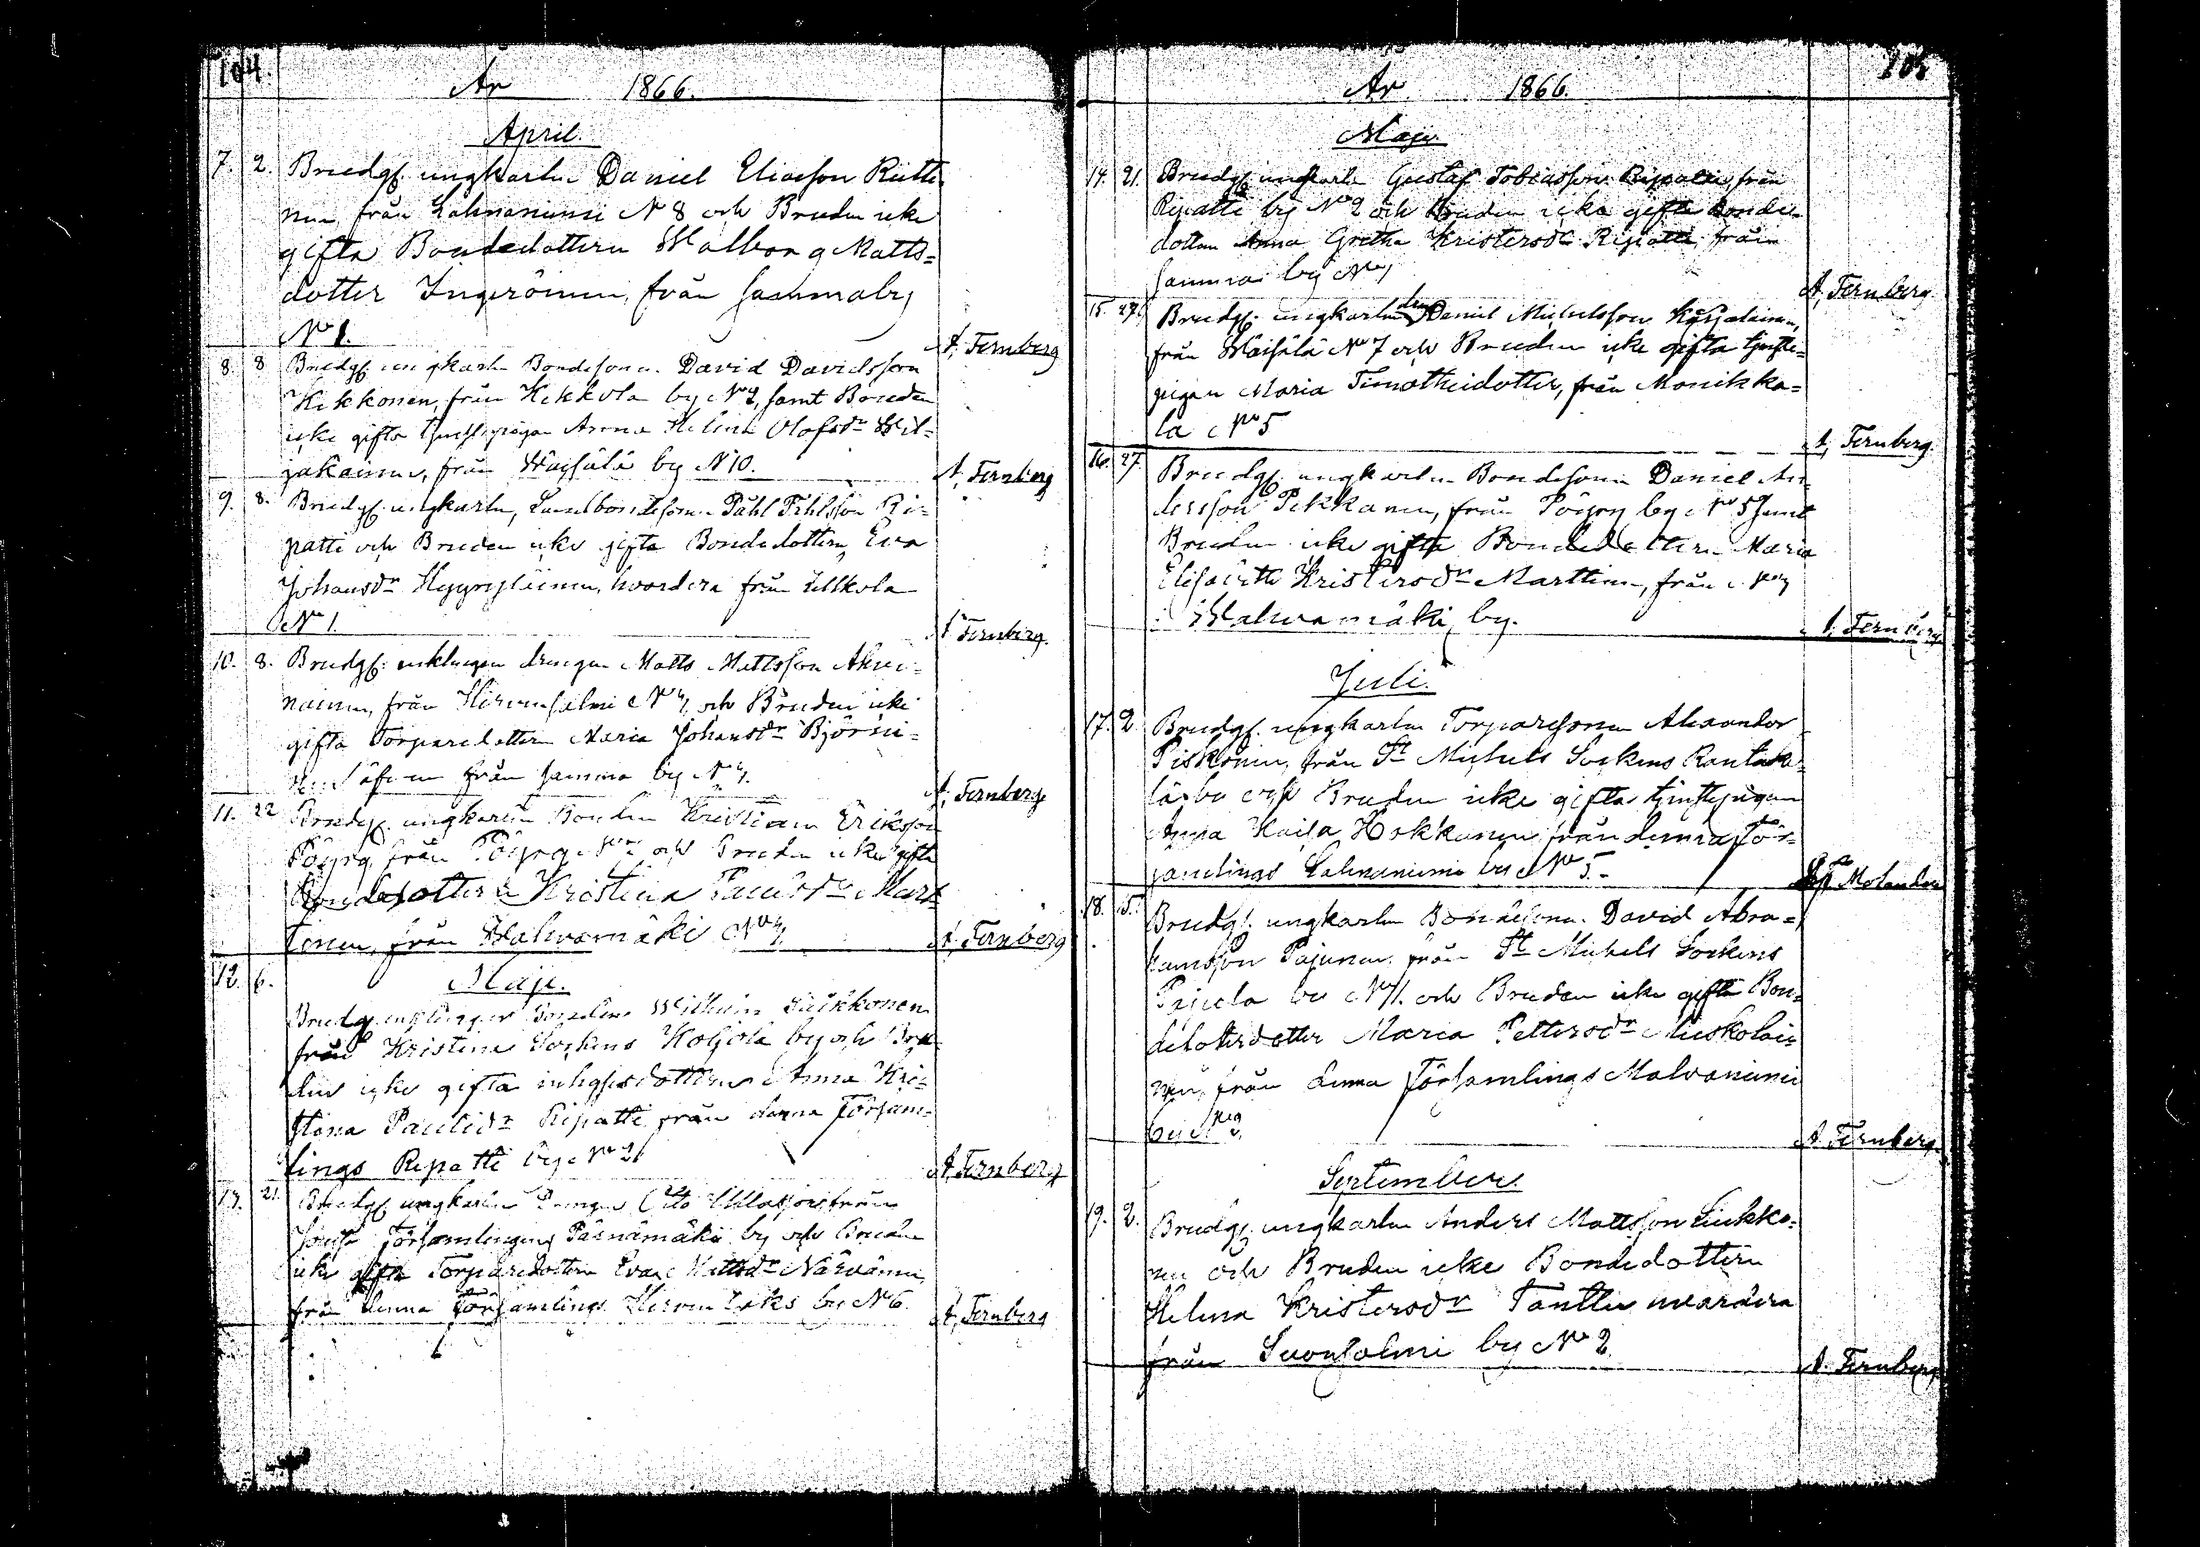 104.
År 1866.
April.
7. 2. Brudg. ungkarlen Daniel Eliasson Rütti
nen från Lahnaniemi N 8 och Bruden icke
gifta Bondedottern Walborg Matts=
dotter Ingeröinen, från samma by
No 1. A, Fernberg
8. 8 Brudg. ungkarlen Bondesonen David Davidsson
Kekkonen, från Kekkola by No 2, samt Bruden
icke gifta tjenstepigan Anna Helena Olofsdr Wil=
jakainen, från Waisälä by N 10. A, Fernberg
9. 8. Brudg. ungkarlen, Landbondesonen Påhl Påhlsson Ri=
patti och Bruden icke gifta Bondedottern, Eva
Johansdr Hyyryläinen, hvardera från Ullkola
No 1. A Fernberg.
10. 8. Brudg. enklingen drengen Matts Mattsson Ahvo=
nainen, från Hirvensalmi No 4, och Bruden icke
gifta Torparedottern Maria Johansdr Björni=
nen från samma by No 4. A, Fernberg
11. 22 Brudg. ungkarlen Bonden Kristian Eriksson
Pöyry från Pöyry och Bruden icke gifta
Bondedottern Kristina Paulsdr Mart=
tinen, från Wahvamäki No 4. A, Fernberg
12. 6. Maji.
Brudg. enklingen Bonden Wilhelm Häkkonen
från Kristina Sockens Koljola by och Bru
den icke gifta inhysesdottern Anna Kri=
stina Paulidr Ripatti från denna Försam=
lings Ripatti by No 2 A, Fernberg
13. 21. Brudg. ungkarlen Drengen Otto från
Jousa Församlings Päänämäki by och Bruden
icke gifta Torparedottern Eva Mattsdr Närvänen
från denna Församlings Hirven by N 6. A, Fernberg
105
År 1866.
Maji.
14. 21. Brudg. ungkarlen Gustaf Tobiasson Ripatti, från
Ripatti by No 2 och Bruden icke gifta Bonde=
dottern Anna Gretha Kristersdr Ripatti från
samma by No 1 A, Fernberg.
15. 27. Brudg. ungkarlen dreng Daniel Michelsson Karjalainen,
från Waisälä No 7 och Bruden icke gifta tjenste=
pigan Maria Timotheidotter, från Monikka=
la No 5 A, Fernberg.
16. 27 Brudg. ungkarlen Bondesonen Daniel An
dersson Pekkanen, från Pöyry by No 5 samt
Bruden icke gifta Bondedottern Maria
Elisabeth Kristersdr Marttinen, från No 4
Wahvamäki by. A. Fernberg
Juli.
17. 2 Brudg. ungkarlen Torparesonen Alexander
Piskonen, från St Michels Sockens Rantaky=
lä by och Bruden icke gifta tjenstepigan
Anna Kaisa Hokkanen från denna För=
samlings Lahnaniemi by No 5. Molander
18. 15. Brudg. ungkarlen Bondesonen David Abra=
hamsson Pajunen, från St Michels Sockens
Pajula by No 1. och Bruden icke gifta Bon=
dedotterdotter Maria Pettersdr Muskolai=
nen, från denna Församlings Malvaniemi
by No 2. A Fernberg.
September.
19. 2. Brudg. ungkarlen Anders Mattsson Liukko=
nen och Bruden icke Bondedottern
Helena Kristersdr Tanttu hvardera
från Suonsalmi by No 2. A. Fernberg.